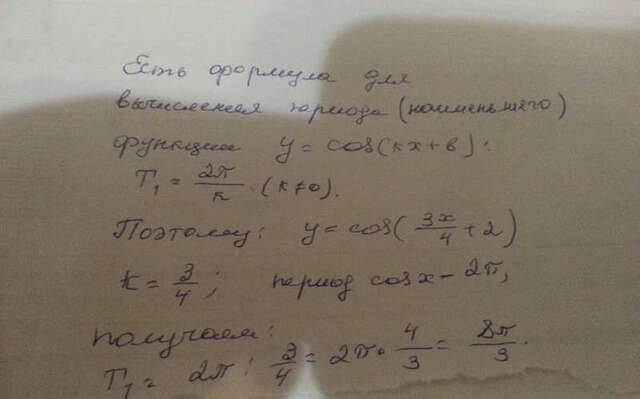 Есть формула для
вычисления периода (наименьшего)
функции y = cos(kx+b):
T₁ = 2π/k · (k≠0).
Поэтому: y = cos(3x/4 + 2)
k = 3/4; период cos x – 2π,
получаем:
T₁ = 2π : 3/4 = 2π · 4/3 = 8π/3.